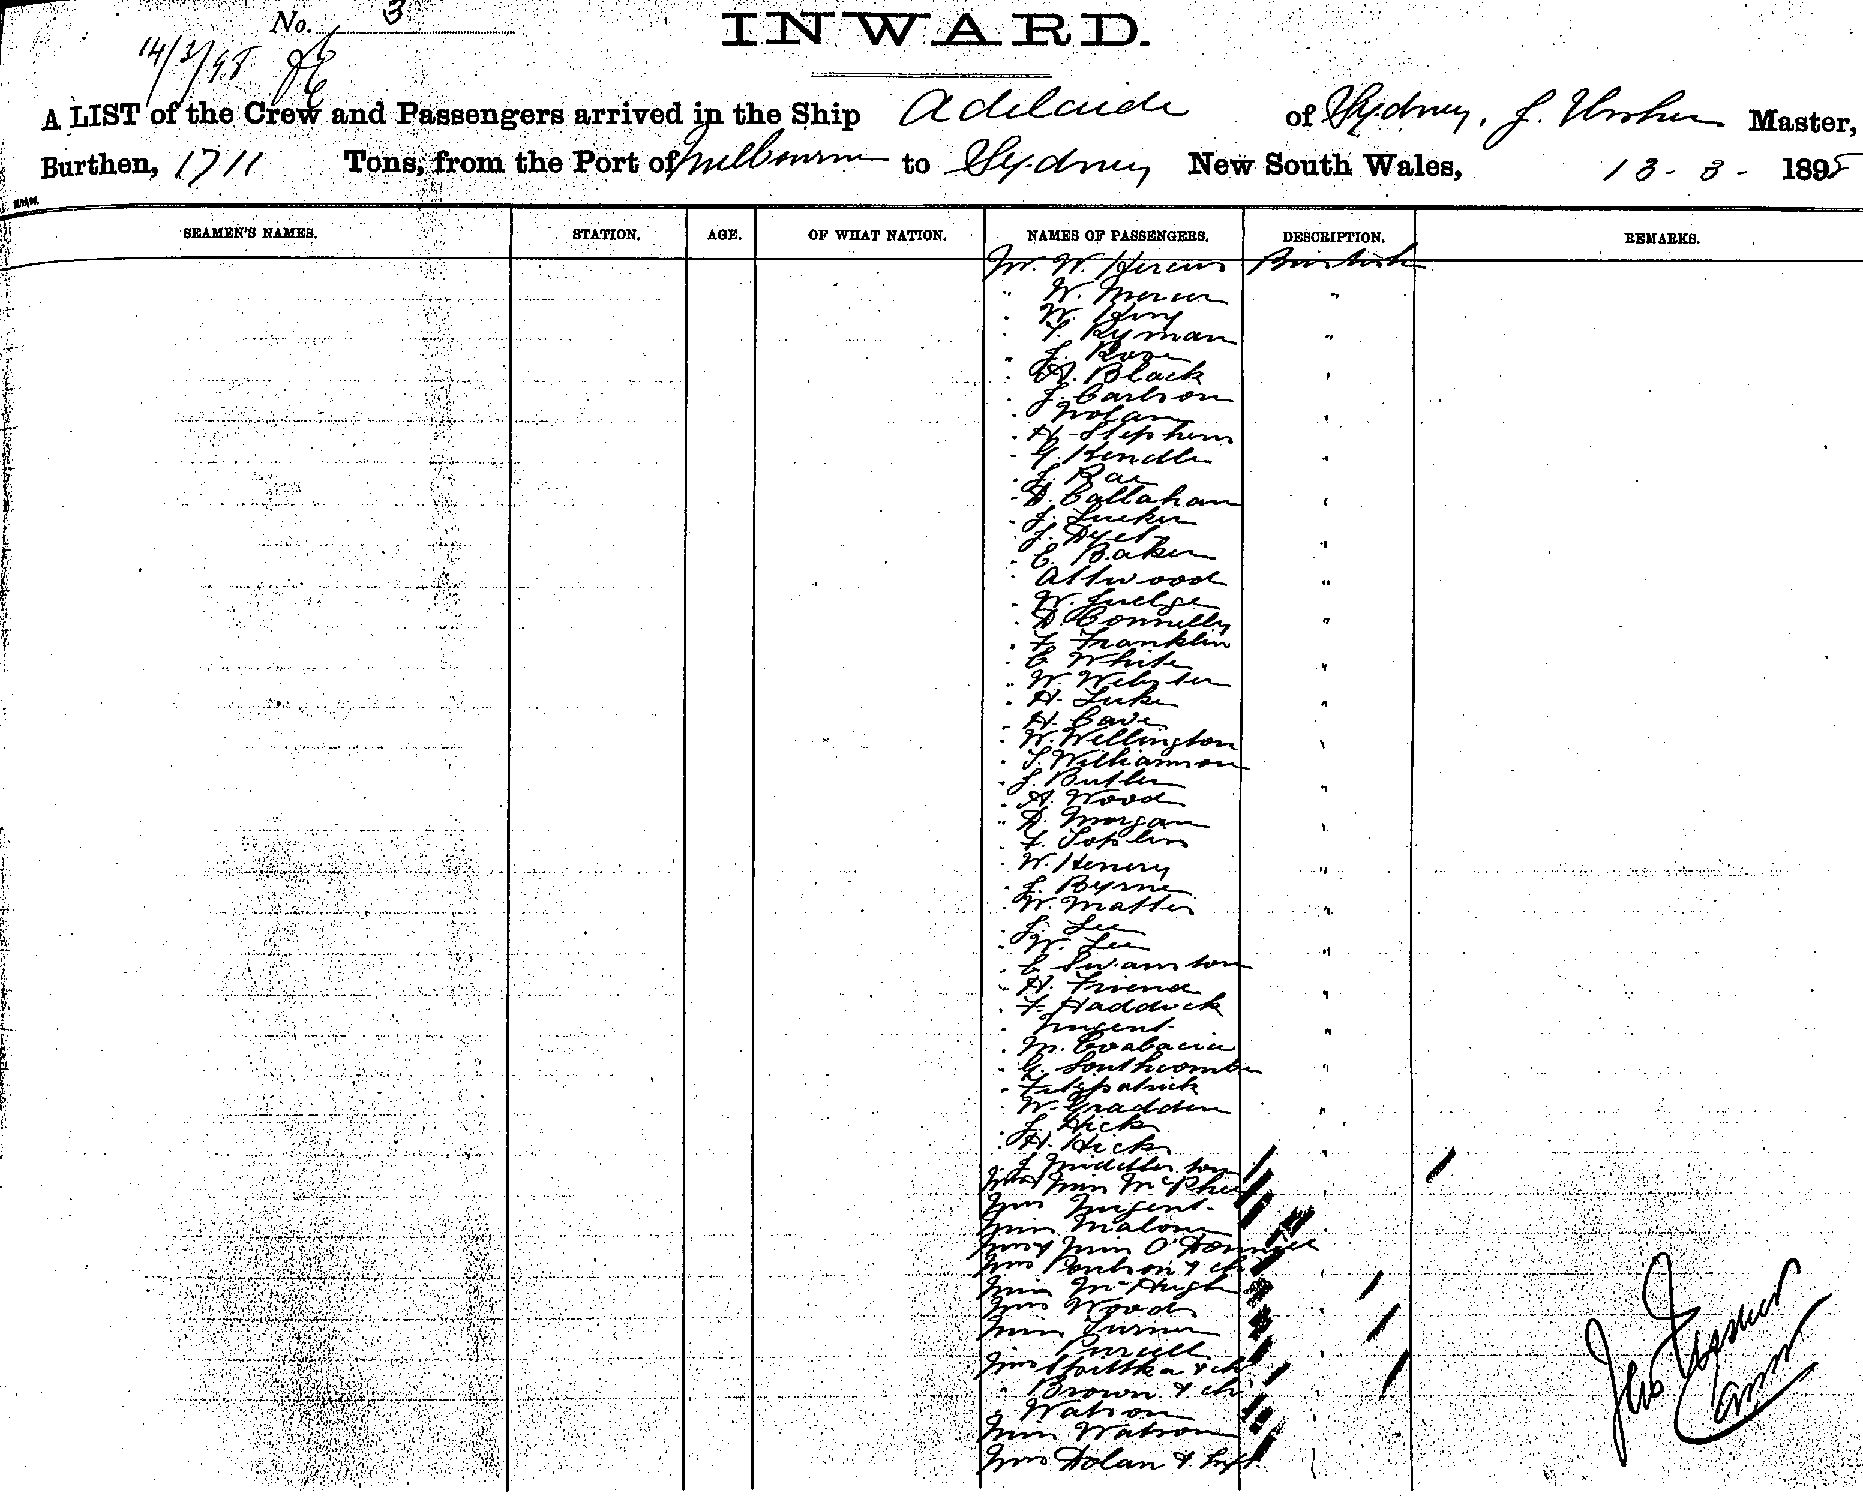 No. 3
INWARD.
14/3/98
A LIST of the Crew and Passengers arrived in the Ship Adelaide of Sydney, J. Ussher Master,
Burthen, 1711 Tons, from the Port of Melbourne to Sydney New South Wales, 13-3-1895
SEAMEN'S NAMES. STATION. AGE. OF WHAT NATION. NAMES OF PASSENGERS. DESCRIPTION. REMARKS.
Mr. W. Hercus British
" W. Mercer "
. W. King
. Ryman "
" J. Rose
. A. Black "
. J. Carlson
. Nolan "
. H. Stephens
. G. Kendle "
. J. Rae
. D. Callahan "
. J. Tucker
. J. Dyet "
. C. Baker
. Attwood "
. W. Judge
. D. Connelly "
. F. Franklin
. C. White "
" W. Webster
. H. Luke "
. H. Cave
. W. Wellington "
. T. Williamson
. J. Butler "
. A. Wood
" D. Morgan "
. F. Joplin
. W. Henery "
. J. Byrne
. W. Matter "
. J. Lee
. W. Lee "
. C. Swanston
. H. Friend "
. F. Haddrick
. Nugent "
. M.
. G. Southcombe "
. Fitzpatrick
. W. Gradden "
. J. Hick
. H. Hicks "
J. Middleton
Miss McPhee
Mrs Nugent
Miss Malone
Mrs & Miss O'Donnell
Mrs Poulson & ch
Miss McHugh
Mrs Wood
Miss Turner
" Purcell
Mrs & ch
" Brown & ch
" Watson
Miss Watson
Mrs Dolan & Inft
Jno Ussher